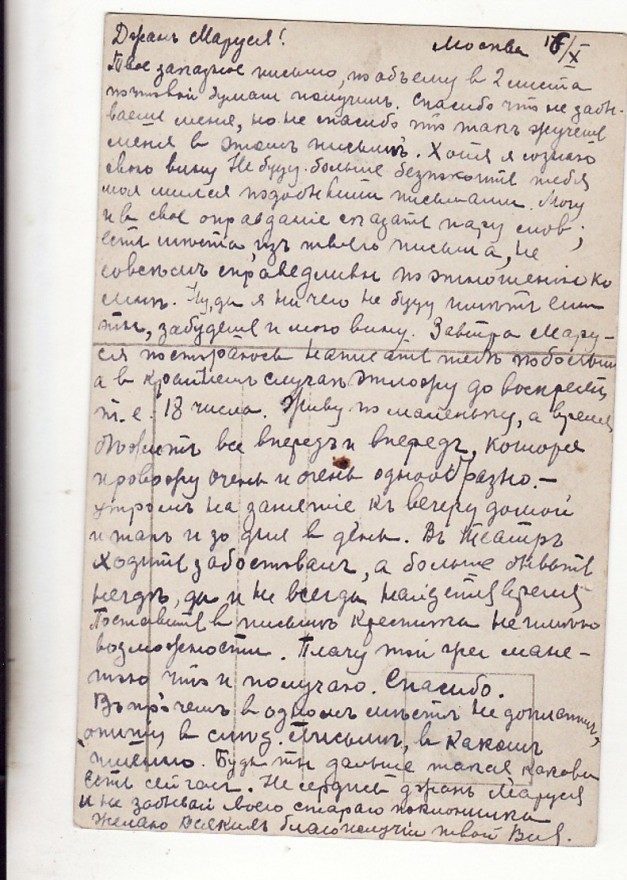 Джанъ Маруся! Москва 16/X
Твое западное письмо, по объему в 2 листа
почтовой бумаги получилъ. Спасибо что не забы-
ваеше меня, но не спасибо что такъ жучеше
меня в этомъ письмѣ. Хотя я сознаю
свою вину. Не буду больше безпокоить тебя
моя милая подобными письмами. Могу
и в свое оправданіе сказать пару словъ;
есть мѣста, изъ твоего письма, не
совсѣмъ справедливы по отношенію ко
мнѣ. Ну, да я ничего не буду имѣть если
ты, забудеше и мою вину. Завтра Мару-
ся постараюсь написать тебѣ побольше
а в крайнемъ случаѣ отложу до воскресен
т. е. 18 числа. Живу по маленьку, а время
бѣжитъ все впередъ и впередъ, которое
провожу очень и очень однообразно. —
утромъ на занятіе къ вечеру домой
и такъ изо дня в день. Въ театръ
ходить забастовалъ, а больше бывать
негдѣ, да и не всегда найдется время
Поставить в письмѣ крестика не имѣю
возможности. Плачу той же мане-
тою что и получаю. Спасибо.
Въпрочемъ в одномъ мѣстѣ не доплатилъ,
опишу в слѣд. письмѣ, в какомъ
именно. Будь ты дальше такая какова
есть сейчас. Не сердися джанъ Маруся
и не забывай своего стараго поклонника
Желаю всякихъ благополучій твой Вия.